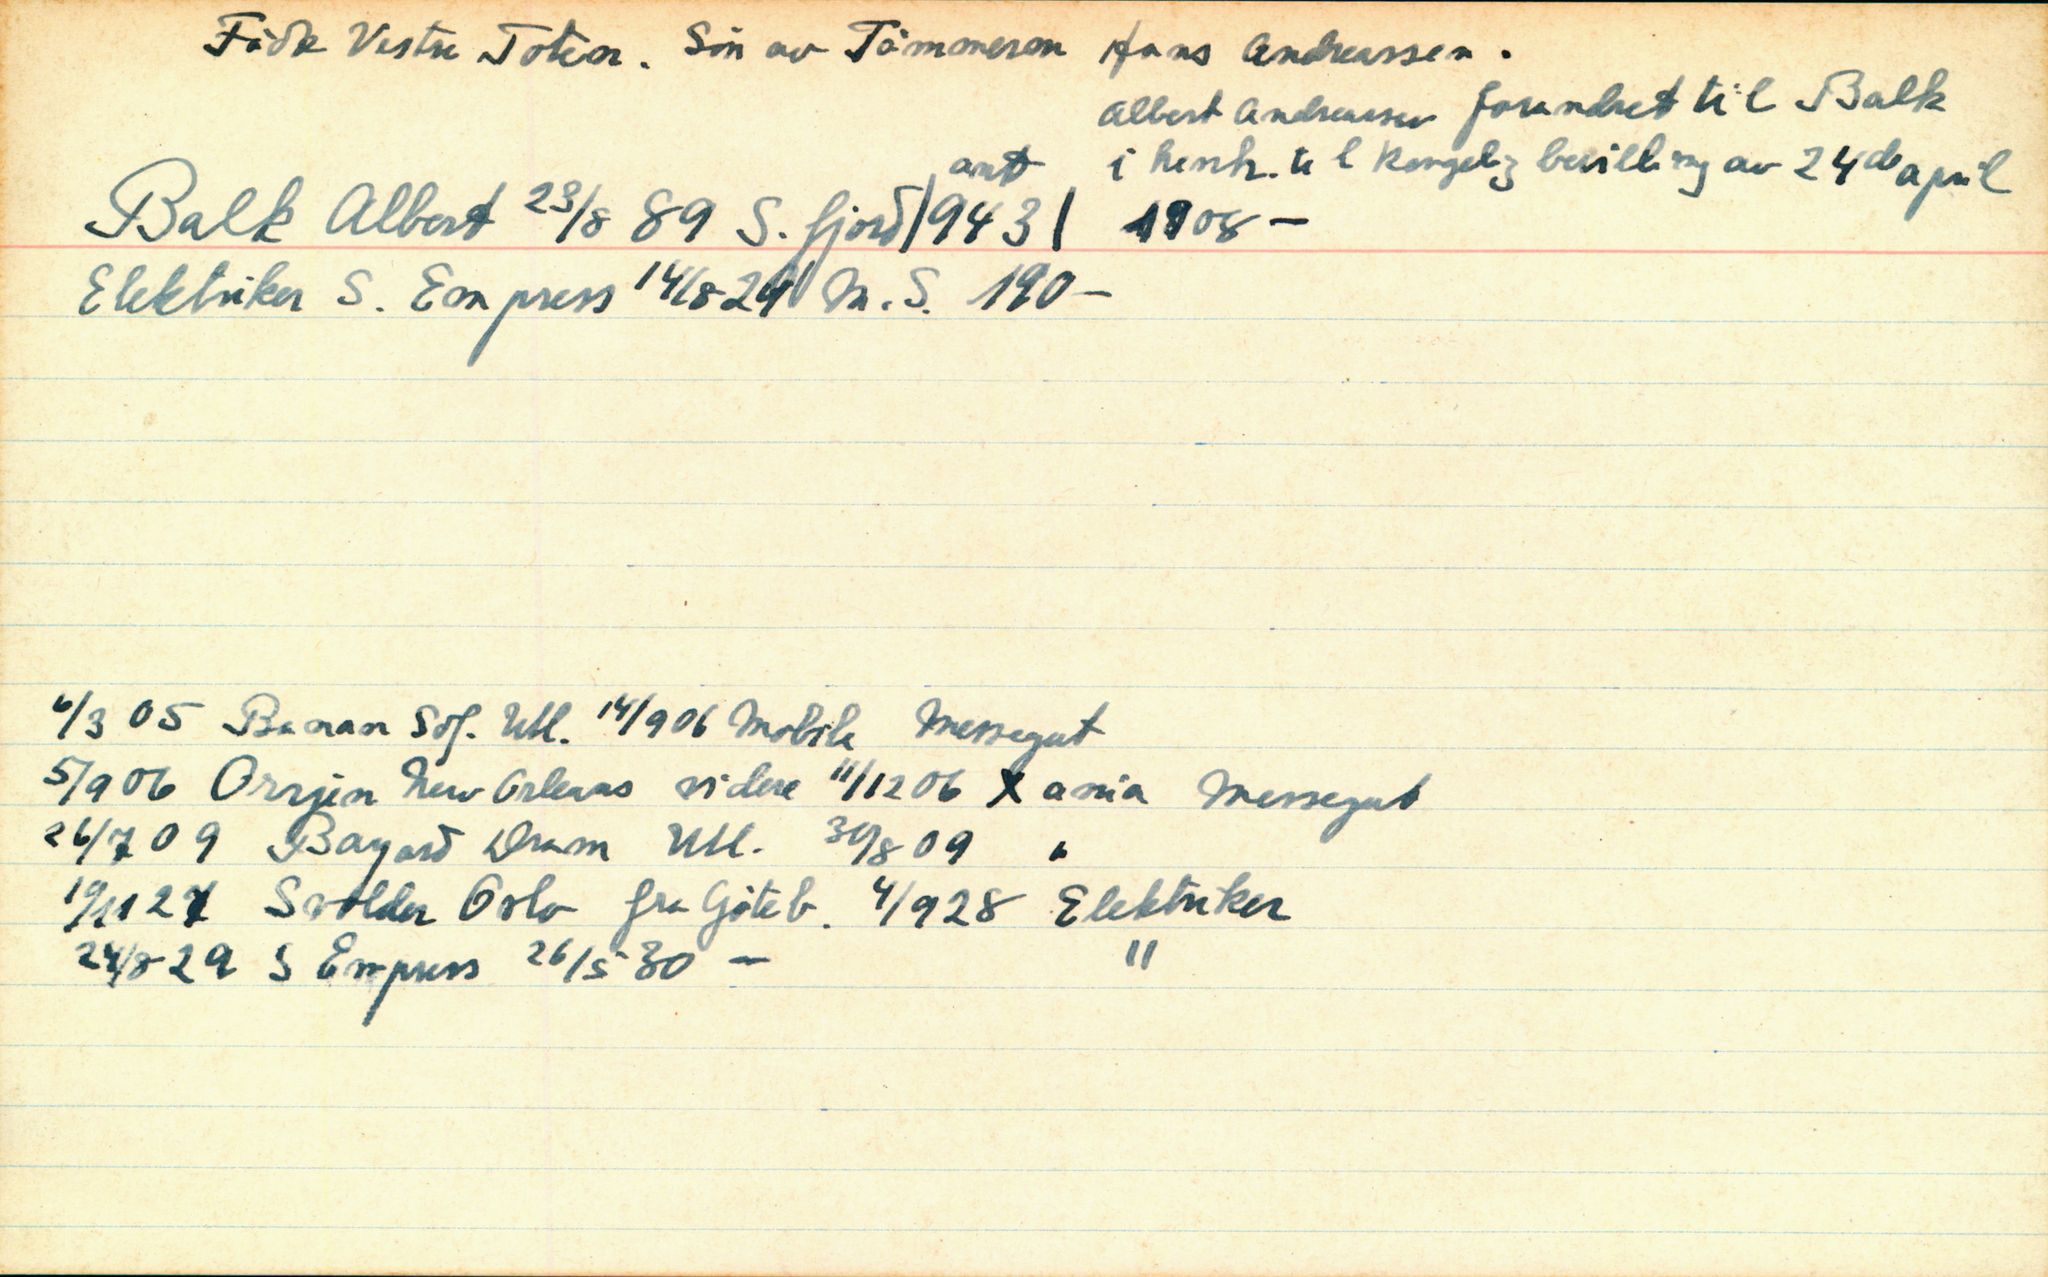 Född Vestre Toten. Sön av Tömmerm Hans Andreassen.
Albert Andreassen forandret til Balk
i henh. til Kongelig bevilling av 24de april
1908 —
ant
Balk Albert 23/8 89 S. fjord |943|
Elektriker S. Empress 14/8 29 M.S. 190 —
6/3 05 Banan Sdf. Utl. 14/9 06 Mobile Messegut
5/9 06 Orrjen New Orleans videre 11/12 06 Xania Messegut
26/7 09 Bayard Dram Utl. 30/8 09 "
19/11 27 Svolder Oslo fra Göteb. 4/9 28 Elektriker
24/8 29 S Empress 26/5 30 — "